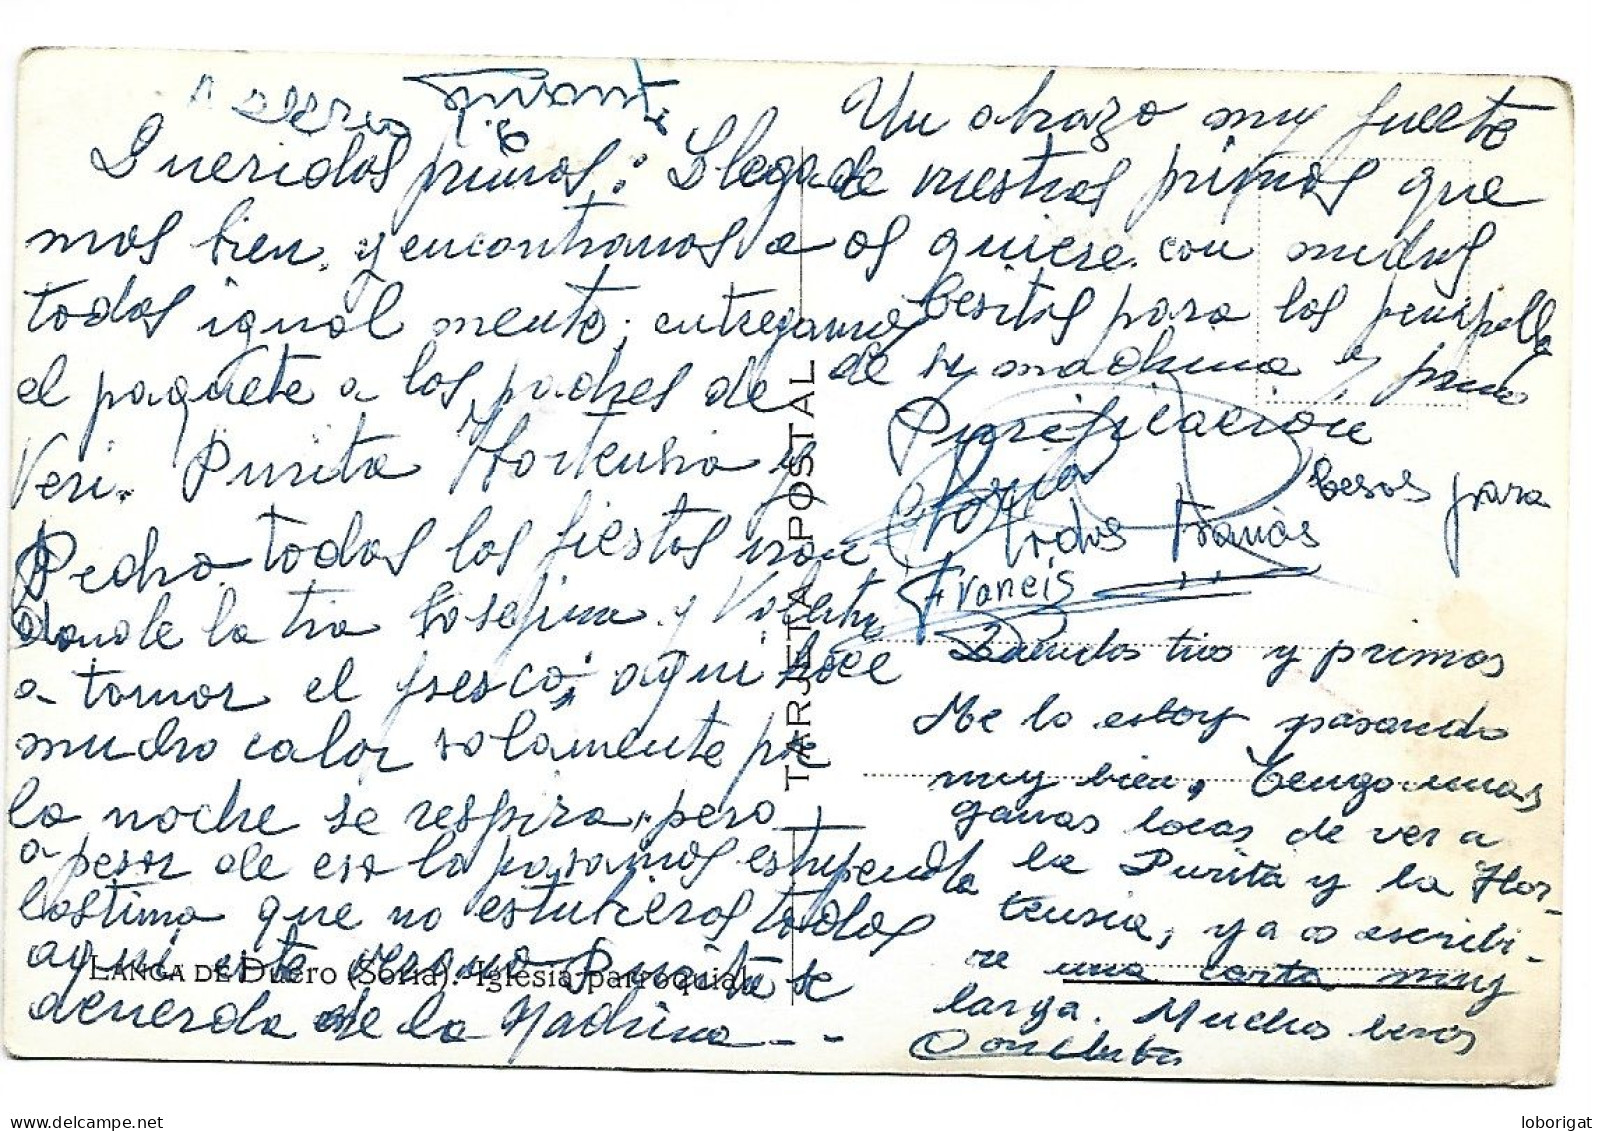 Queridos primos: Llega
mos bien. y encontramos a
todos igual mente. entregamos
el paquete a los padres de
Veri. Purita Hortensia y
Pedro todos los fiestas iran
donde la tia Josefina y
a tomar el fresco, aqui hace
mucho calor solamente por
la noche se respira, pero
a pesar de eso la pasamos estupenda
lastima que no estubieros todos
aqui este verano Purita se
acuerda de la Madrina --
Un abrazo muy fuerte
de vuestros primos que
os quiere con muchos
besitos para los
de su madrina y
Purificacion
besos para
todos
Francis
Queridos tios y primos
Me lo estoy pasando
muy bien, Tengo unas
ganas locas de ver a
la Purita y la Hor-
tensia, ya os escribi-
re una carta muy
larga. Muchos besos
Conchita
TARJETA POSTAL
LANGA DE Duero (Soria).-Iglesia parroquial.
loborigat